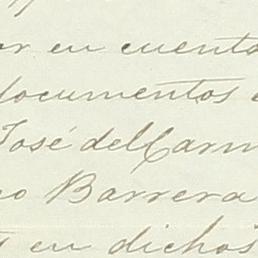 or en cuenta
documentos
José del Carm
no Barrera
en dichos